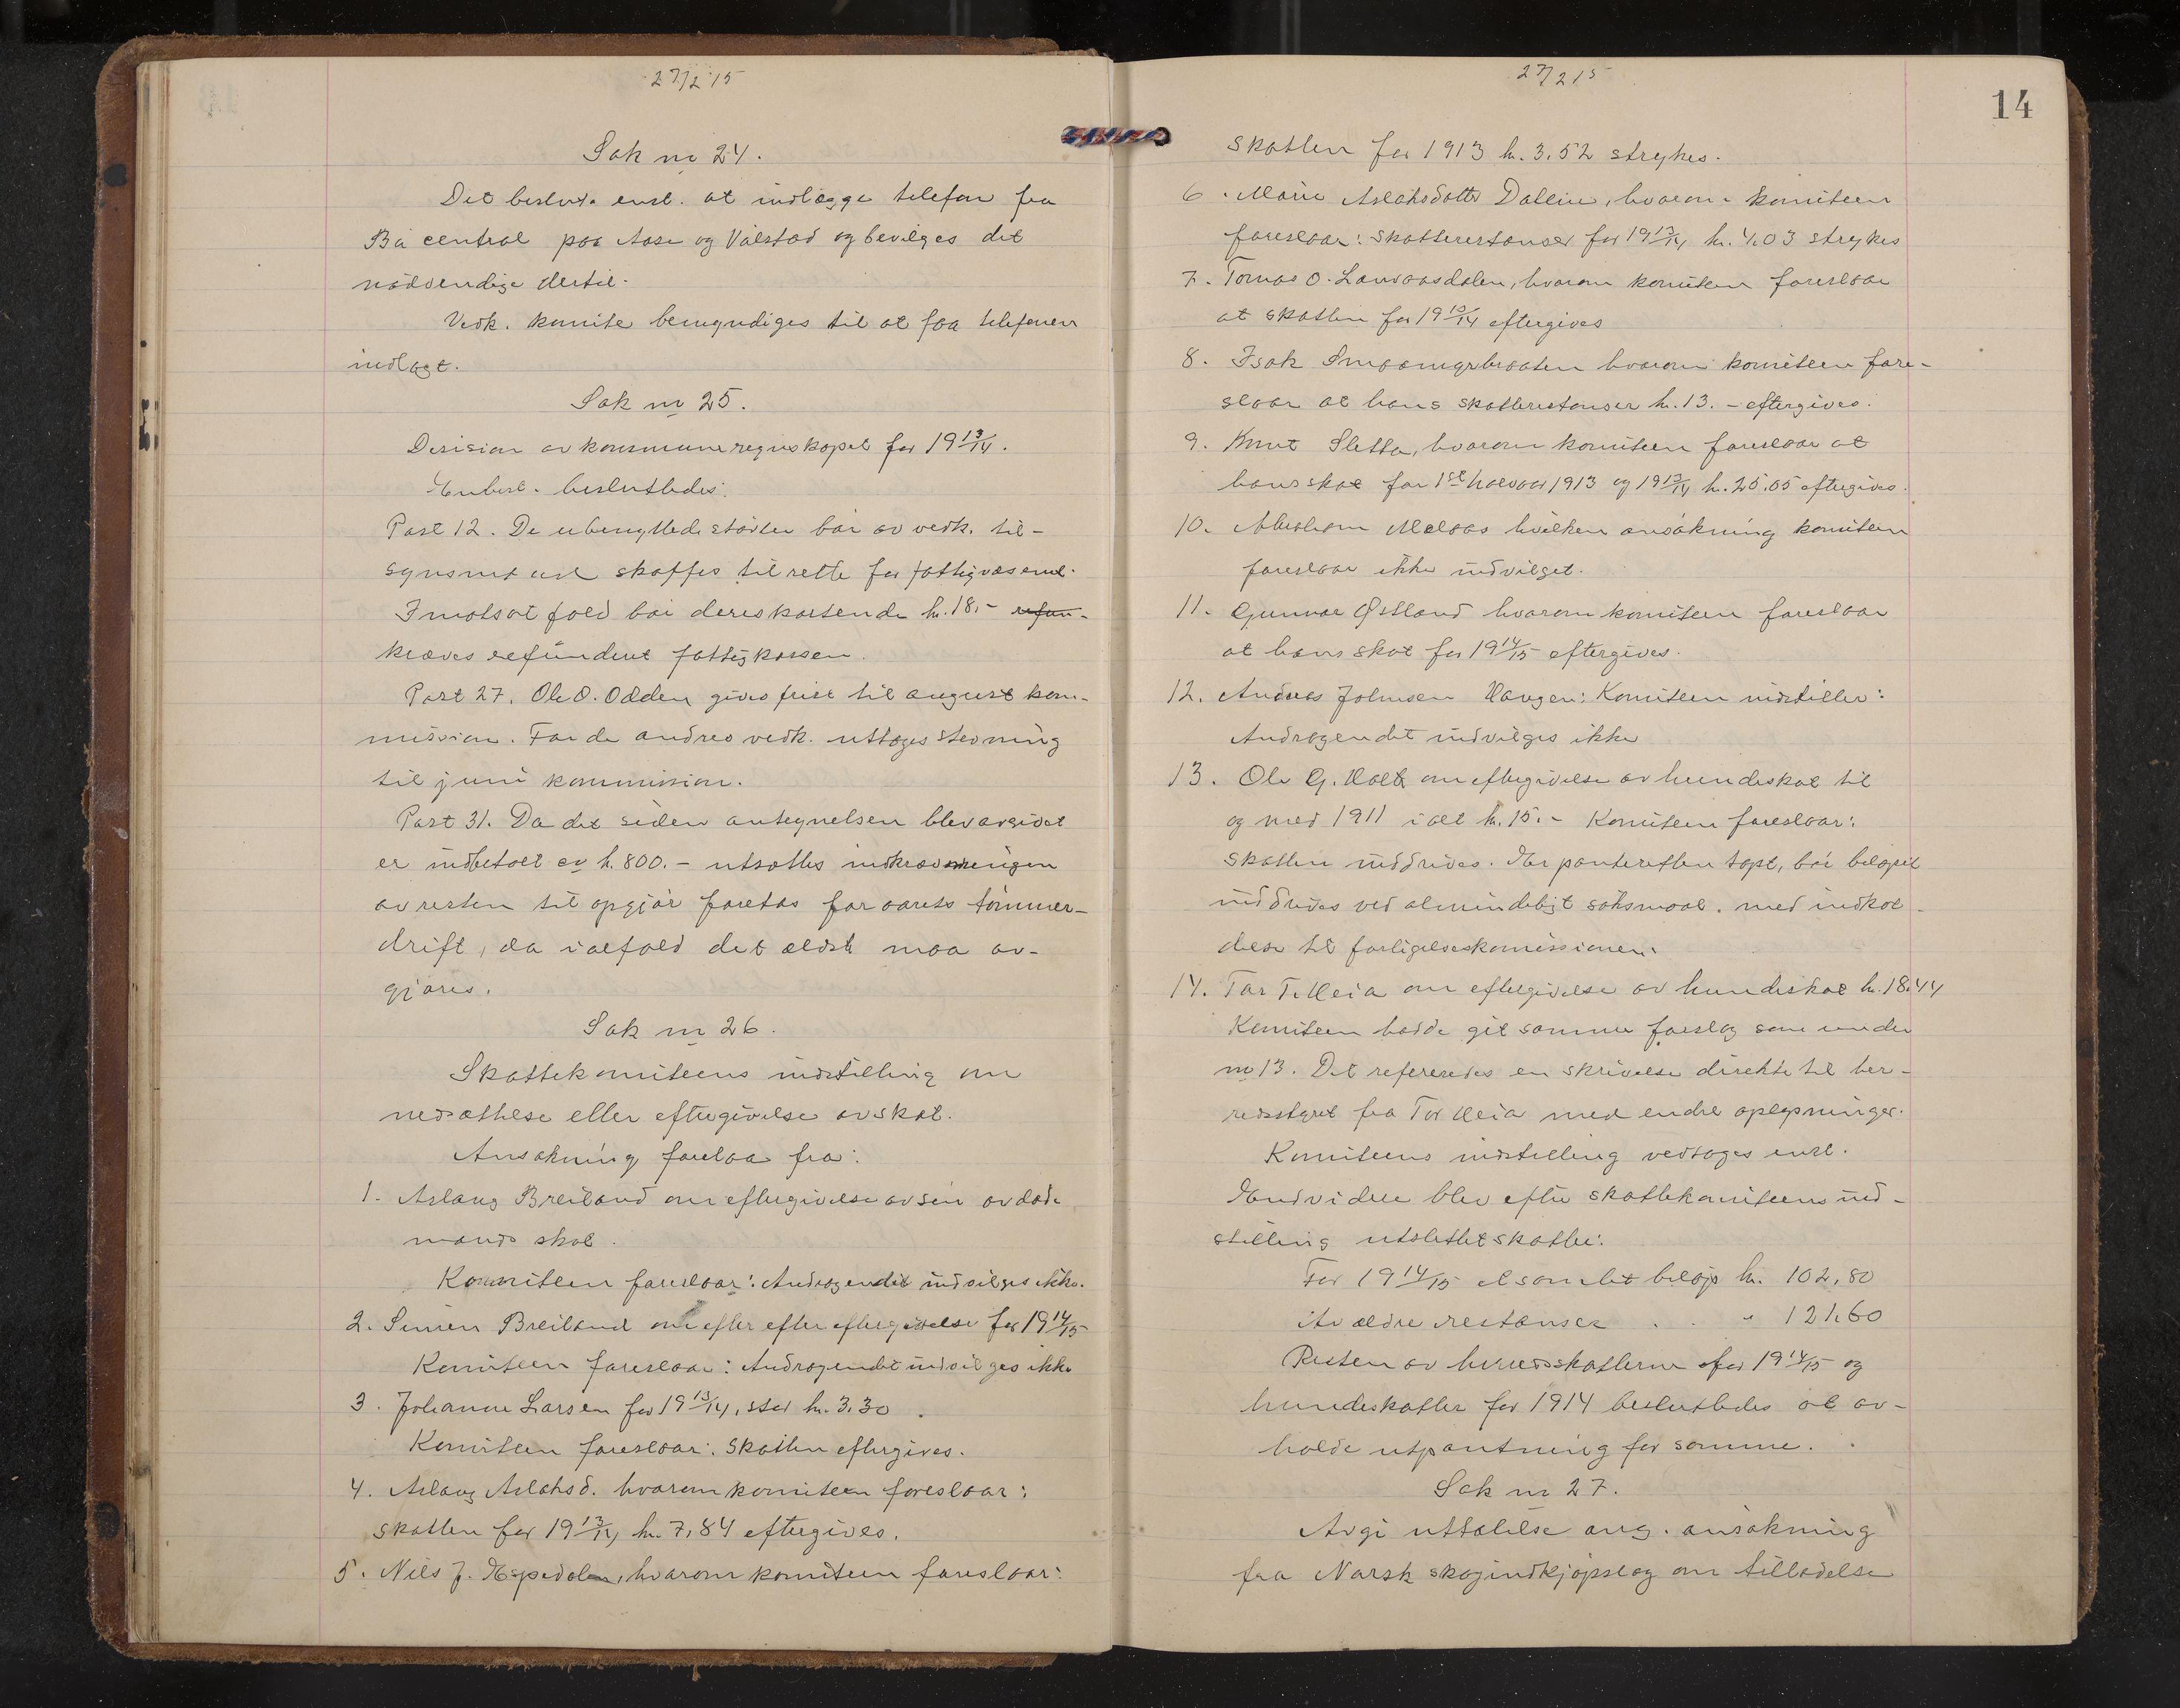 27/2 15
Sak nr 24.
Det beslut. enst. at indlægge telefon fra
Bø central paa Aase og Valstad og bevilges det
nødvendige dertil.
Vedk. komite bemyndiges til at faa telefonen
indlagt.
Sak nr 25.
Desision av kommuneregnskapet for 1913/14.
Enst. beslutledes:
Post 12. De ubenyttede støvler bør av vedk. til-
synsmand skaffes tilrette for fattigvæsenet.
I motsat fald bør dereskostende kr. 18,- refun-
kræves refundert fattigkassen.
Post 27. Ole O. Odden gives frist til august kom-
mission. For de andres vedk. uttages stevning
til juni kommission.
Post 31. Da det siden antegnelsen blev avgivet
er indbetalt ca kr. 800.- utsættes indkrævningen
av resten til opgjør foretas for aarets tømmer-
drift, da ialfald det ældste maa av-
gjøres.
Sak nr 26.
Skattekomiteens indstilling om
nedsættelse eller eftergivelse av skat.
Ansøkning forelaa fra:
1. Aslaug Breiland om eftergivelse av sin avdøde
mands skat.
Komiteen foreslaar: Andragendet indvilges ikke.
2. Simen Breiland om efter efter eftergivelse for 1914/15
Komiteen foreslaar: Andragendet indvilges ikke
3. Johanne Larsen for 1913/14, stor kr. 3,30.
Komiteen foreslaar: Skatten eftergives.
4. Aslaug Aslaksd. hvorom komiteen foreslaar:
skatten for 1913/14 kr. 7,84 eftergives.
5. Nils J. Espedalen, hvorom komiteen foreslaar:
27/2 15
14
skatten for 1913 kr. 3,52 strykes.
6. Marie Aslaksdatter Dalein, hvorom komiteen
foreslaar: skatterestanser for 1913/14 kr. 4,03 strykes
7. Tomas O. Lauvaasdalen, hvorom komiteen foreslaar
at skatten for 1913/14 eftergives
8. Isak hvorom komiteen fore-
slaar at hans skatterestanser kr. 13.- eftergives.
9. Knut Sletta, hvorom komiteen foreslaar at
hans skat for 1ste halvaar 1913 og 1913/14 kr. 25,05 eftergives.
10. Abraham Melaas hvilken ansøkning komiteen
foreslaar ikke indvilget.
11. Gunnar Østland hvorom komiteen foreslaar
at hans skat for 1914/15 eftergives.
12. Andreas Johnsen Haugen: Komiteen indstiller:
Andragendet indvilges ikke
13. Ole G. Holta om eftergivelse av hundeskat til
og med 1911 ialt kr. 15.- Komiteen foreslaar:
Skatten inddrives. Er panteretten tapt, bør beløpet
inddrives ved almindeligt søksmaal. med indkal-
delse til forligelseskomissionen.
14. Tor T. Heia om eftergivelse av hundeskat kr. 18,44
Komiteen hadde git samme forslag som under
nr 13. Det refereredes en skrivelse direkte til her-
redsstyret fra Tor Heia med endel oplysninger.
Komiteens indstilling vedtages enst.
Endvidere blev efter skattekomiteens ind-
stilling utslettet skatter:
For 1914/15 et samlet beløp kr. 102,80
Av ældre restanser . . " 121,60
Resten av herredsskatterne for 1914/15 og
hundeskatter for 1914 beslutledes at av-
holde utpantning for samme.
Sak nr 27.
Avgi uttalelse ang. ansøkning
fra Norsk skogindkjøpslag om tilladelse